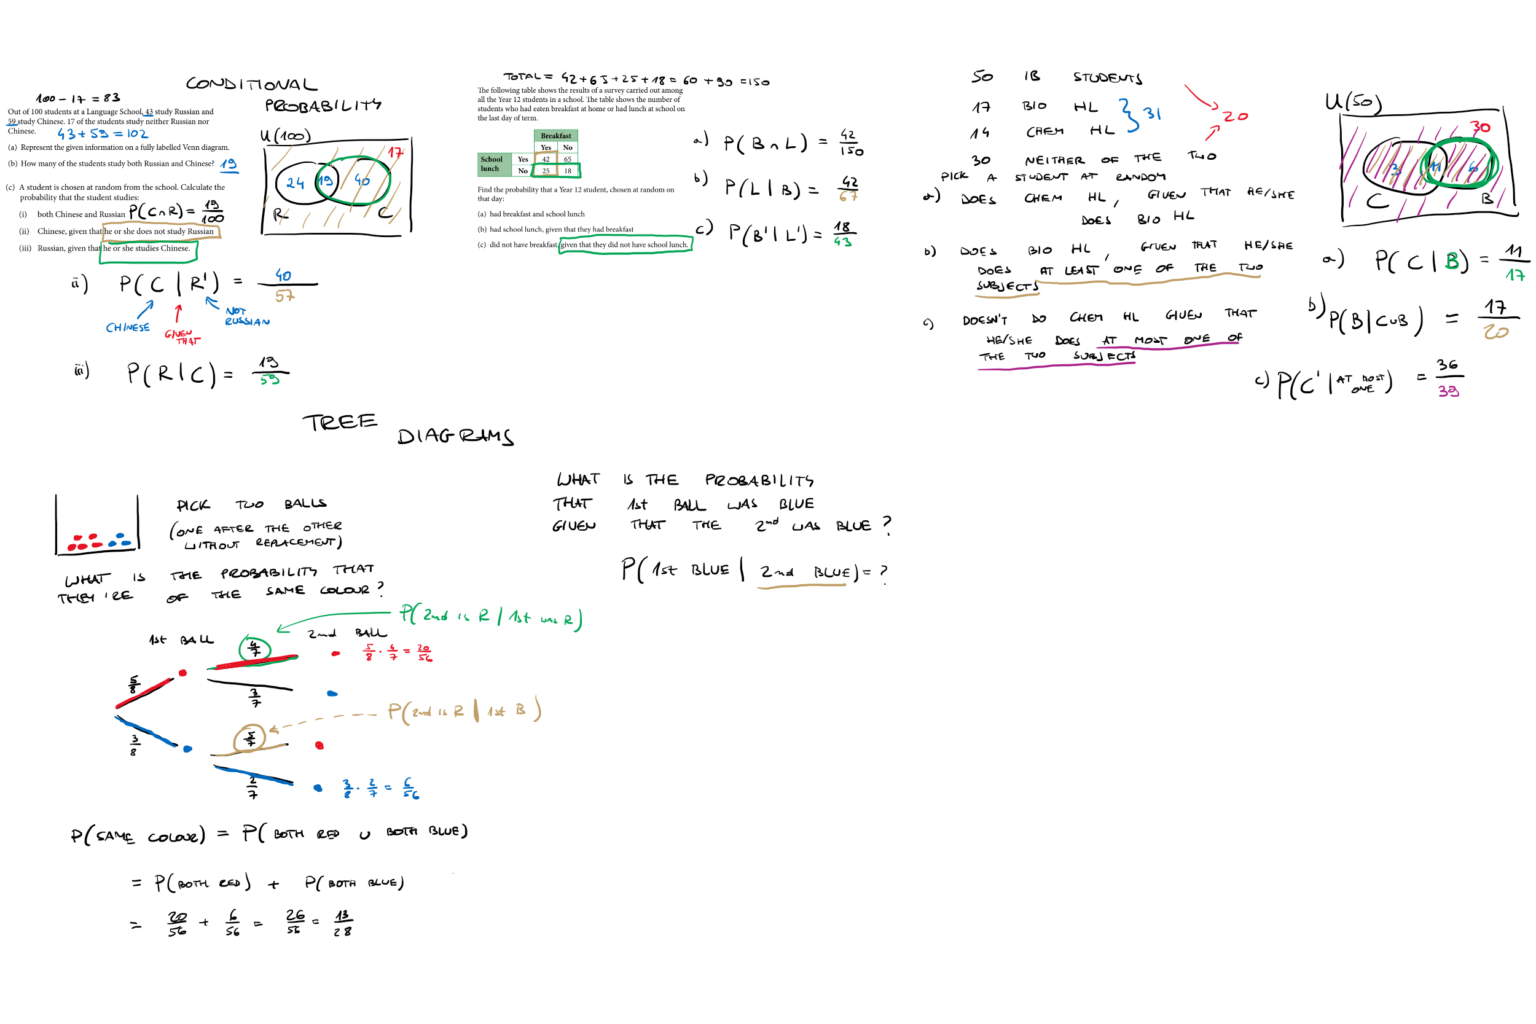 CONDITIONAL
PROBABILITY
100 - 17 = 83
Out of 100 students at a Language School, 43 study Russian and
59 study Chinese. 17 of the students study neither Russian nor
Chinese.
43 + 59 = 102
(a) Represent the given information on a fully labelled Venn diagram.
(b) How many of the students study both Russian and Chinese? 19
(c) A student is chosen at random from the school. Calculate the
probability that the student studies:
(i) both Chinese and Russian P(C∩R) = 19/100
(ii) Chinese, given that he or she does not study Russian
(iii) Russian, given that he or she studies Chinese.
U(100)
17
24 19 40
R C
ii) P(C | R') = 40/57
CHINESE
GIVEN THAT
NOT RUSSIAN
iii) P(R | C) = 19/59
TOTAL = 42 + 65 + 25 + 18 = 60 + 90 = 150
The following table shows the results of a survey carried out among
all the Year 12 students in a school. The table shows the number of
students who had eaten breakfast at home or had lunch at school on
the last day of term.
Breakfast
Yes No
School lunch Yes 42 65
No 25 18
Find the probability that a Year 12 student, chosen at random on
that day:
(a) had breakfast and school lunch
(b) had school lunch, given that they had breakfast
(c) did not have breakfast, given that they did not have school lunch.
a) P(B∩L) = 42/150
b) P(L | B) = 42/67
c) P(B' | L') = 18/43
50 IB STUDENTS
17 BIO HL } 31
14 CHEM HL
20
30 NEITHER OF THE TWO
PICK A STUDENT AT RANDOM
a) DOES CHEM HL, GIVEN THAT HE/SHE
DOES BIO HL
b) DOES BIO HL, GIVEN THAT HE/SHE
DOES AT LEAST ONE OF THE TWO
SUBJECTS
c) DOESN'T DO CHEM HL GIVEN THAT
HE/SHE DOES AT MOST ONE OF
THE TWO SUBJECTS
U(50)
30
3 11 6
C B
a) P(C | B) = 11/17
b) P(B | C∪B) = 17/20
c) P(C' | AT MOST ONE) = 36/39
TREE
DIAGRAMS
PICK TWO BALLS
(ONE AFTER THE OTHER
WITHOUT REPLACEMENT)
WHAT IS THE PROBABILITY THAT
THEY'RE OF THE SAME COLOUR?
P(2nd is R | 1st was R)
1st BALL 4/7 2nd BALL
5/8 · 4/7 = 20/56
5/8
3/7
P(2nd is R | 1st B)
3/8
5/7
2/7
3/8 · 2/7 = 6/56
P(SAME COLOUR) = P(BOTH RED ∪ BOTH BLUE)
= P(BOTH RED) + P(BOTH BLUE)
= 20/56 + 6/56 = 26/56 = 13/28
WHAT IS THE PROBABILITY
THAT 1st BALL WAS BLUE
GIVEN THAT THE 2nd WAS BLUE?
P(1st BLUE | 2nd BLUE) = ?